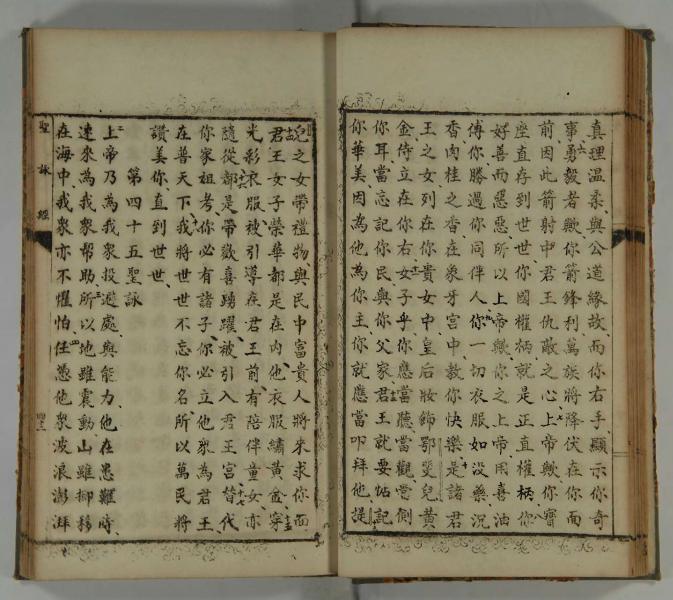 真理溫柔、與公道緣故、而你右手、顯示你奇
事、六勇毅者歟、你箭鋒利、萬族將降伏在你面
前、因此箭射中君王仇敵之心、七上帝歟、你寶
座直存到世世、你國權柄、就是正直權柄、八你
好善而惡惡、所以上帝歟、你之上帝、用喜油
傅你、勝過你同伴人、九你一切衣服、如沒藥沉
香肉桂之香、在象牙宮中、教你快樂、十是諸君
王之女列在你貴女中、皇后妝飾鄂斐兒黃
金、侍立在你右、十一女子乎、你應當聽當觀、當側
你耳、當忘記你民、與你父家、十二君王就要惦記
你華美、因為他為你主、你就應當叩拜他、十三提
兒之女帶禮物、與民中富貴人、將來求你面
十四君王女子榮華都是在內、他衣服繡黃金、十五穿
光彩衣服、被引導在君王前、有陪伴童女亦
隨從、十六都是帶歡喜踴躍、被引入君王宮、十七替代
你家祖考、你必有諸子、你必立他眾為君王
在普天下、十八我將世世不忘你名、所以萬民將
讚美你、直到世世、
第四十五聖詠
二上帝乃為我眾投避處、與能力、他在患難時、
速來為我眾幫助、三所以地雖震動、山雖挪移
在海中、我眾亦不懼怕、四任憑他眾波浪澎湃
聖詠經